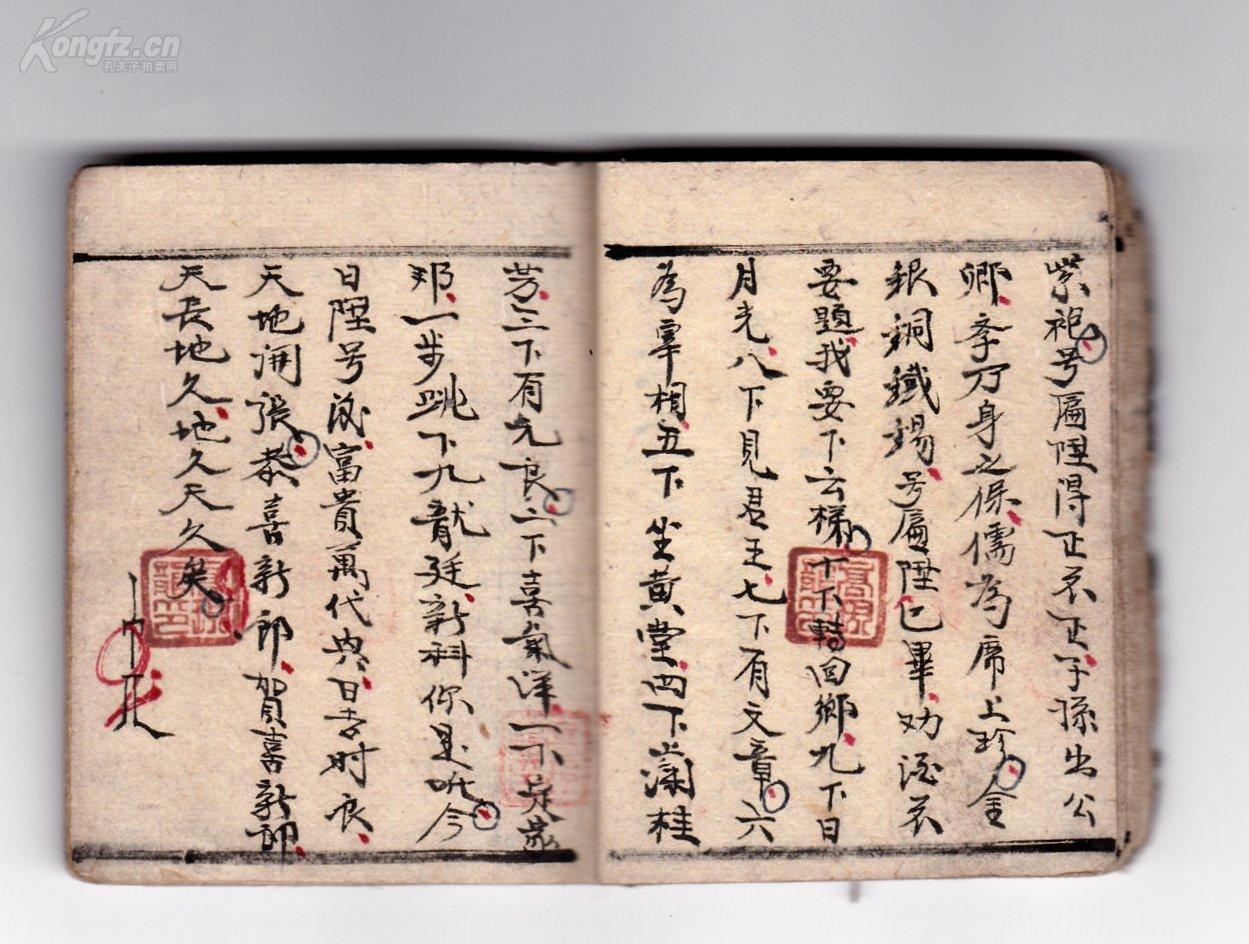 Kongfz.cn
孔夫子拍卖网
紫袍号匾陞得正衣正子孫出公
卿季乃身之保儒為席上珍金
銀銅鐵錫号匾陞已畢劝酒衣
要題我要下云梯十下轉回鄉九下日
月光八下見君王七下有文章六
下為宰相五下坐黄堂四下蘭桂
芳三下有元良二下喜氣洋一下
邦一步跳下九龍廷新科你是吥今
日陞号後富貴萬代興日吉时良
天地開張恭喜新郎賀喜新郎
天長地久地久天久矣